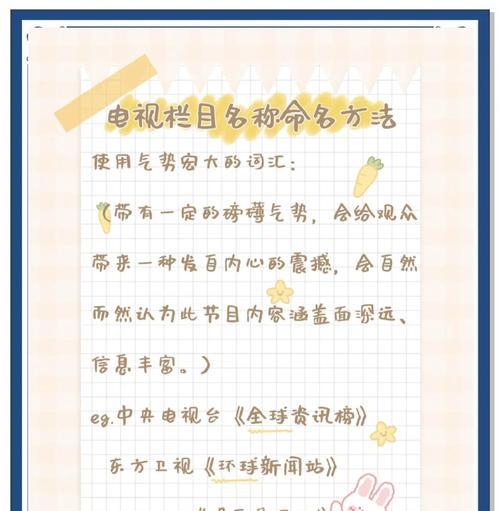 电视栏目名称命名方法
使用气势宏大的词汇：
（带有一定的磅礴气势，会给观众
带来一种发自内心的震撼，会自然
而然认为此节目内容涵盖面深远、
信息丰富。）
eg.中央电视台《全球资讯榜》
东方卫视《环球新闻站》